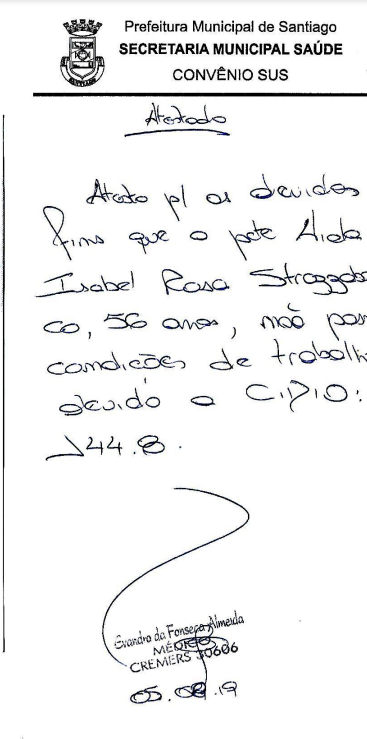 Prefeitura Municipal de Santiago
SECRETARIA MUNICIPAL SAÚDE
CONVÊNIO SUS
Atestado
Atesto p/ os devidos
fins que o pcte Aida
Isabel Rosa Strazzabos
co, 56 anos, não pos
condições de trabalh
devido a C.I.D10:
J44.8.
Evandro da Fonseca Almeida
MÉDICO
CREMERS 30606
05.08.19